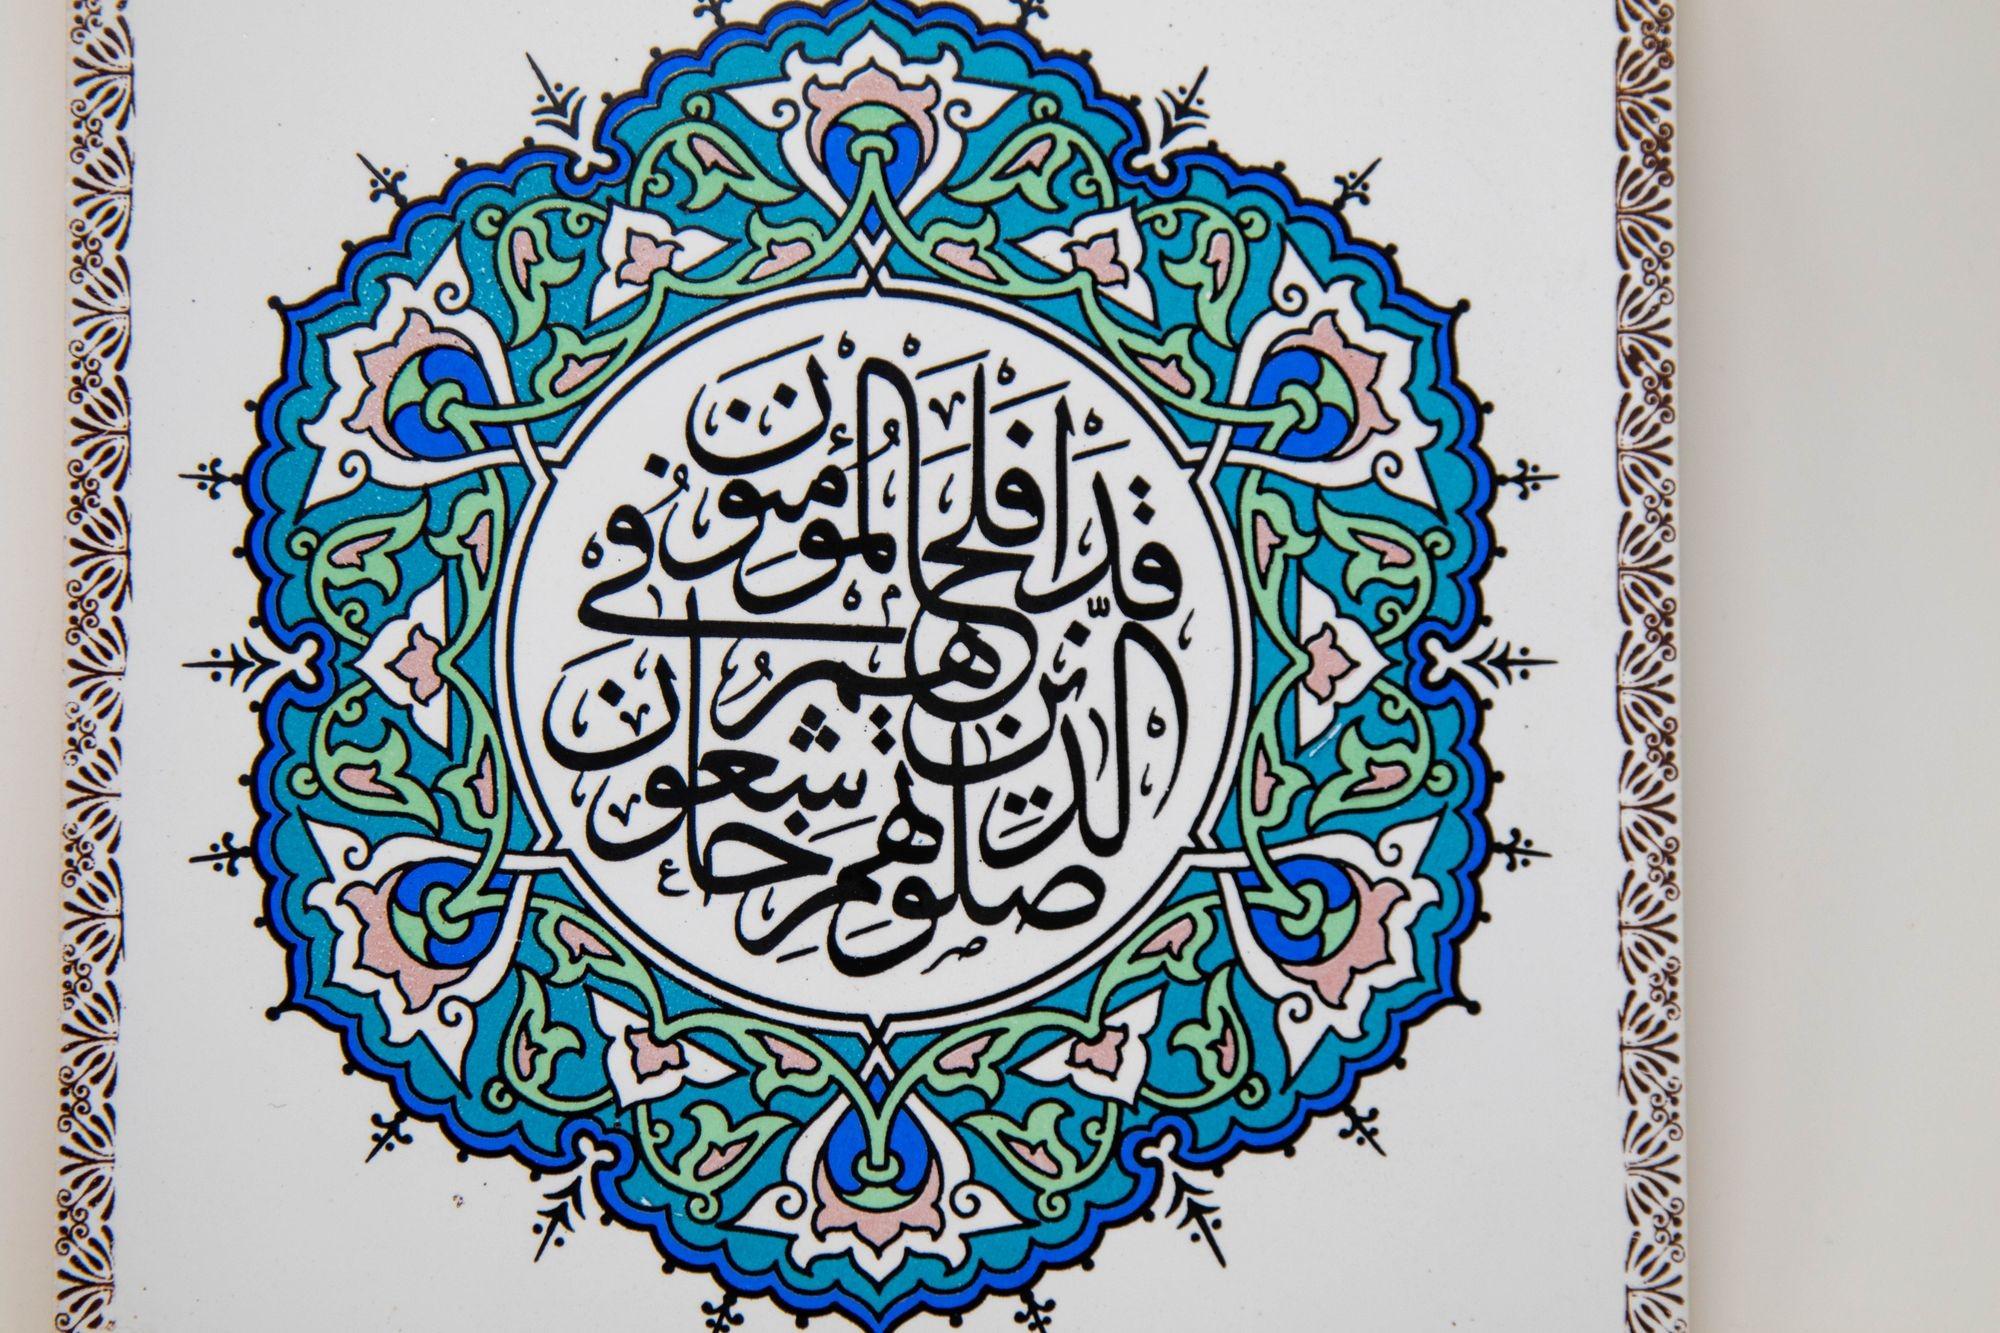 قد افلح المؤمنون
الذين هم في
صلوتهم خاشعون